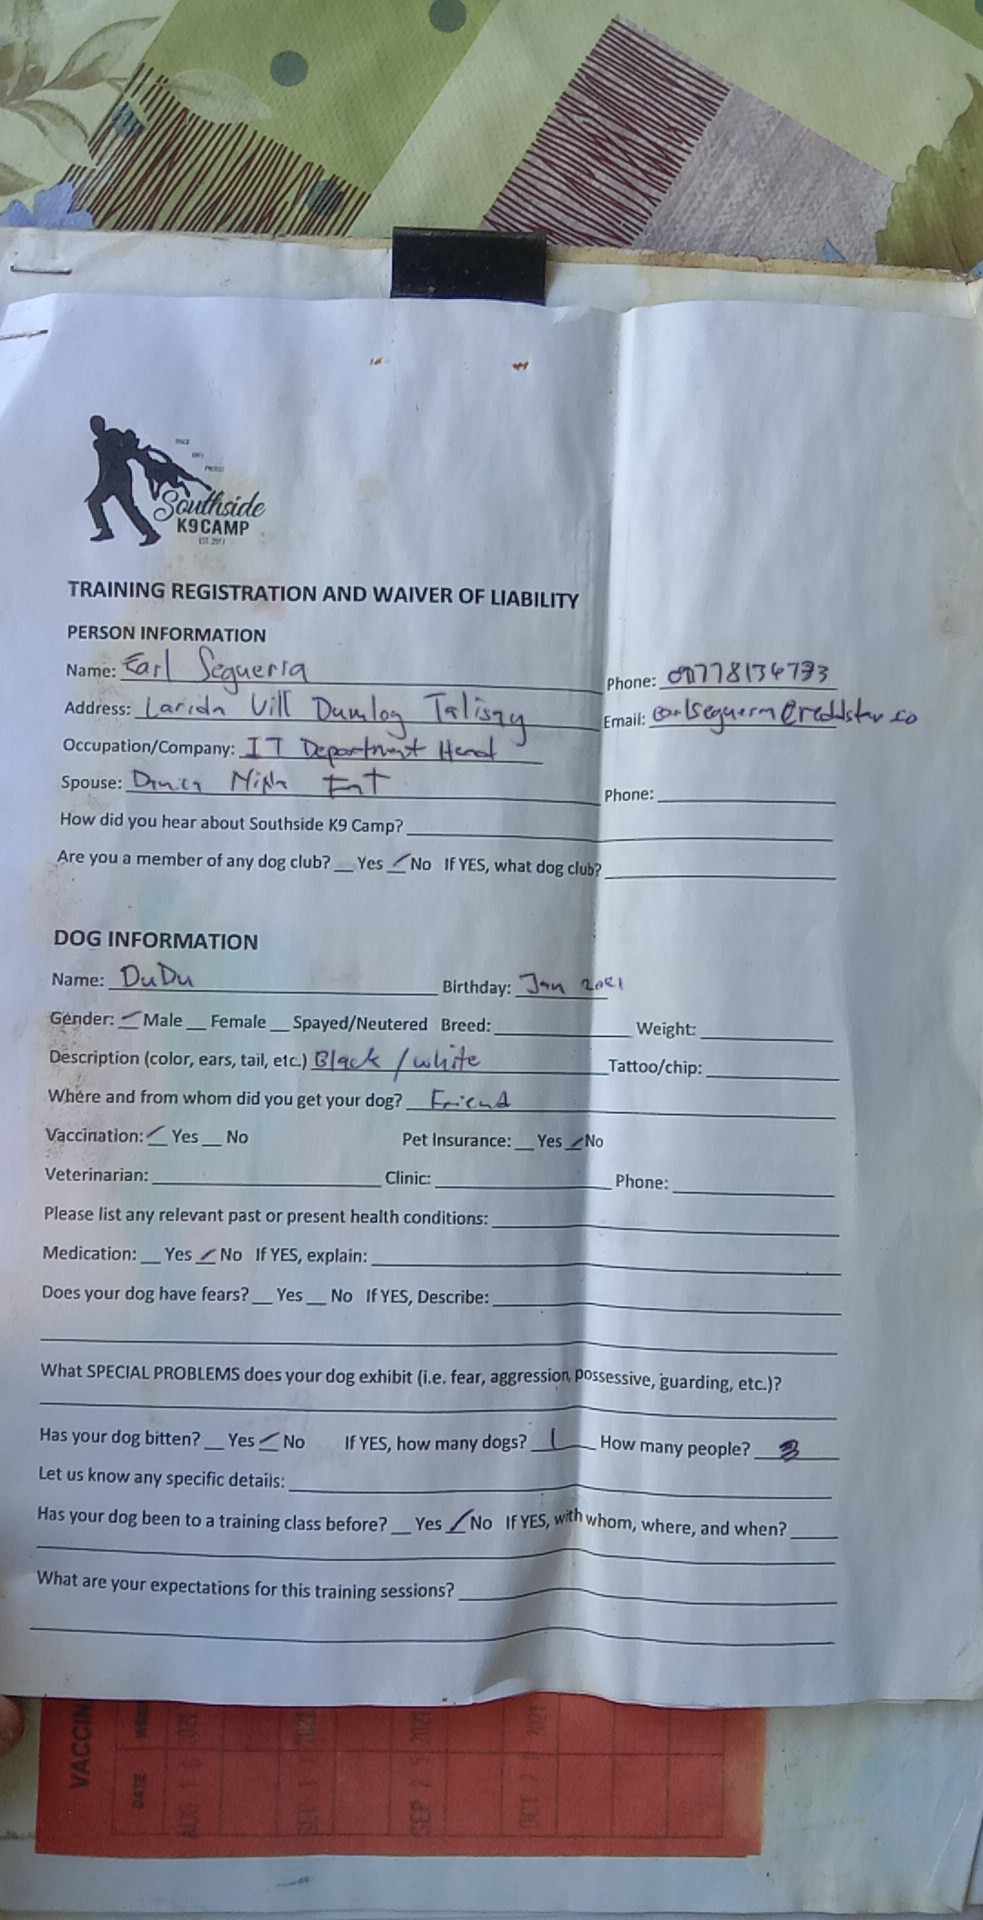 Southside
K9 CAMP
EST. 2017
TRAINING REGISTRATION AND WAIVER OF LIABILITY
PERSON INFORMATION
Name: Earl Segueria Phone:
Address: Larida Vill Dumlog Talisay Email:
Occupation/Company: IT Department Head
Spouse: Phone:
How did you hear about Southside K9 Camp?
Are you a member of any dog club? Yes No If YES, what dog club?
DOG INFORMATION
Name: DuDu Birthday: Jan 2021
Gender: Male Female Spayed/Neutered Breed: Weight:
Description (color, ears, tail, etc.) Black / white Tattoo/chip:
Where and from whom did you get your dog? Friend
Vaccination: Yes No Pet Insurance: Yes No
Veterinarian: Clinic: Phone:
Please list any relevant past or present health conditions:
Medication: Yes No If YES, explain:
Does your dog have fears? Yes No If YES, Describe:
What SPECIAL PROBLEMS does your dog exhibit (i.e. fear, aggression, possessive, guarding, etc.)?
Has your dog bitten? Yes No If YES, how many dogs? 1 How many people? 3
Let us know any specific details:
Has your dog been to a training class before? Yes No If YES, with whom, where, and when?
What are your expectations for this training sessions?
VACCIN
DATE